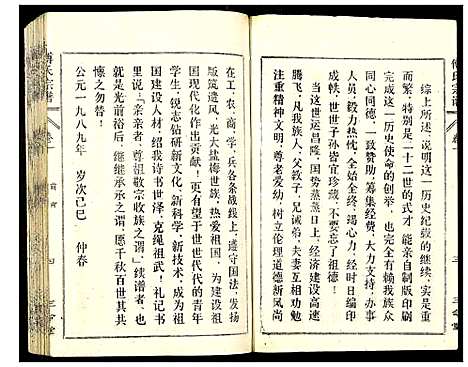 综上所述，说明这一历史纪载的继续，实是重
而繁，特别是二十二世的式才，能亲自制版印刷
完成这一历史使命的创举，也完全有赖我族众
同心同德，一致赞助，筹集经费，大力支持，办事
人员，毅力热忱，全始全终，竭心力，经时日编印
成帙，世世子孙皆宜珍藏，不要忘记祖德！
当我世运昌隆，国势蒸蒸日上，经济建设高速
腾飞，凡我族人，父教子，兄诫弟，夫妻互相劝勉
注重精神文明，尊老爱幼，树立伦理道德新风尚
在工、农、商、学、兵各条战线上，遵守国法，发扬
版筑遗风，光大盐梅世美，热爱祖国，为建设祖
国现代化作出贡献！更有望于世世代代的青年
学生，锐志钻研新文化、新科学、新技术，成为祖
国建设人材，绍我诗书世泽，克绳祖武！礼记书
里说：「亲亲者，尊祖敬宗收族之谓」，续谱者，也
就是光前裕后，继继承承之谓，愿千秋百世其
懔之勿替！
公元一九八九年 岁次己巳 仲春
傅氏宗谱
卷一
四